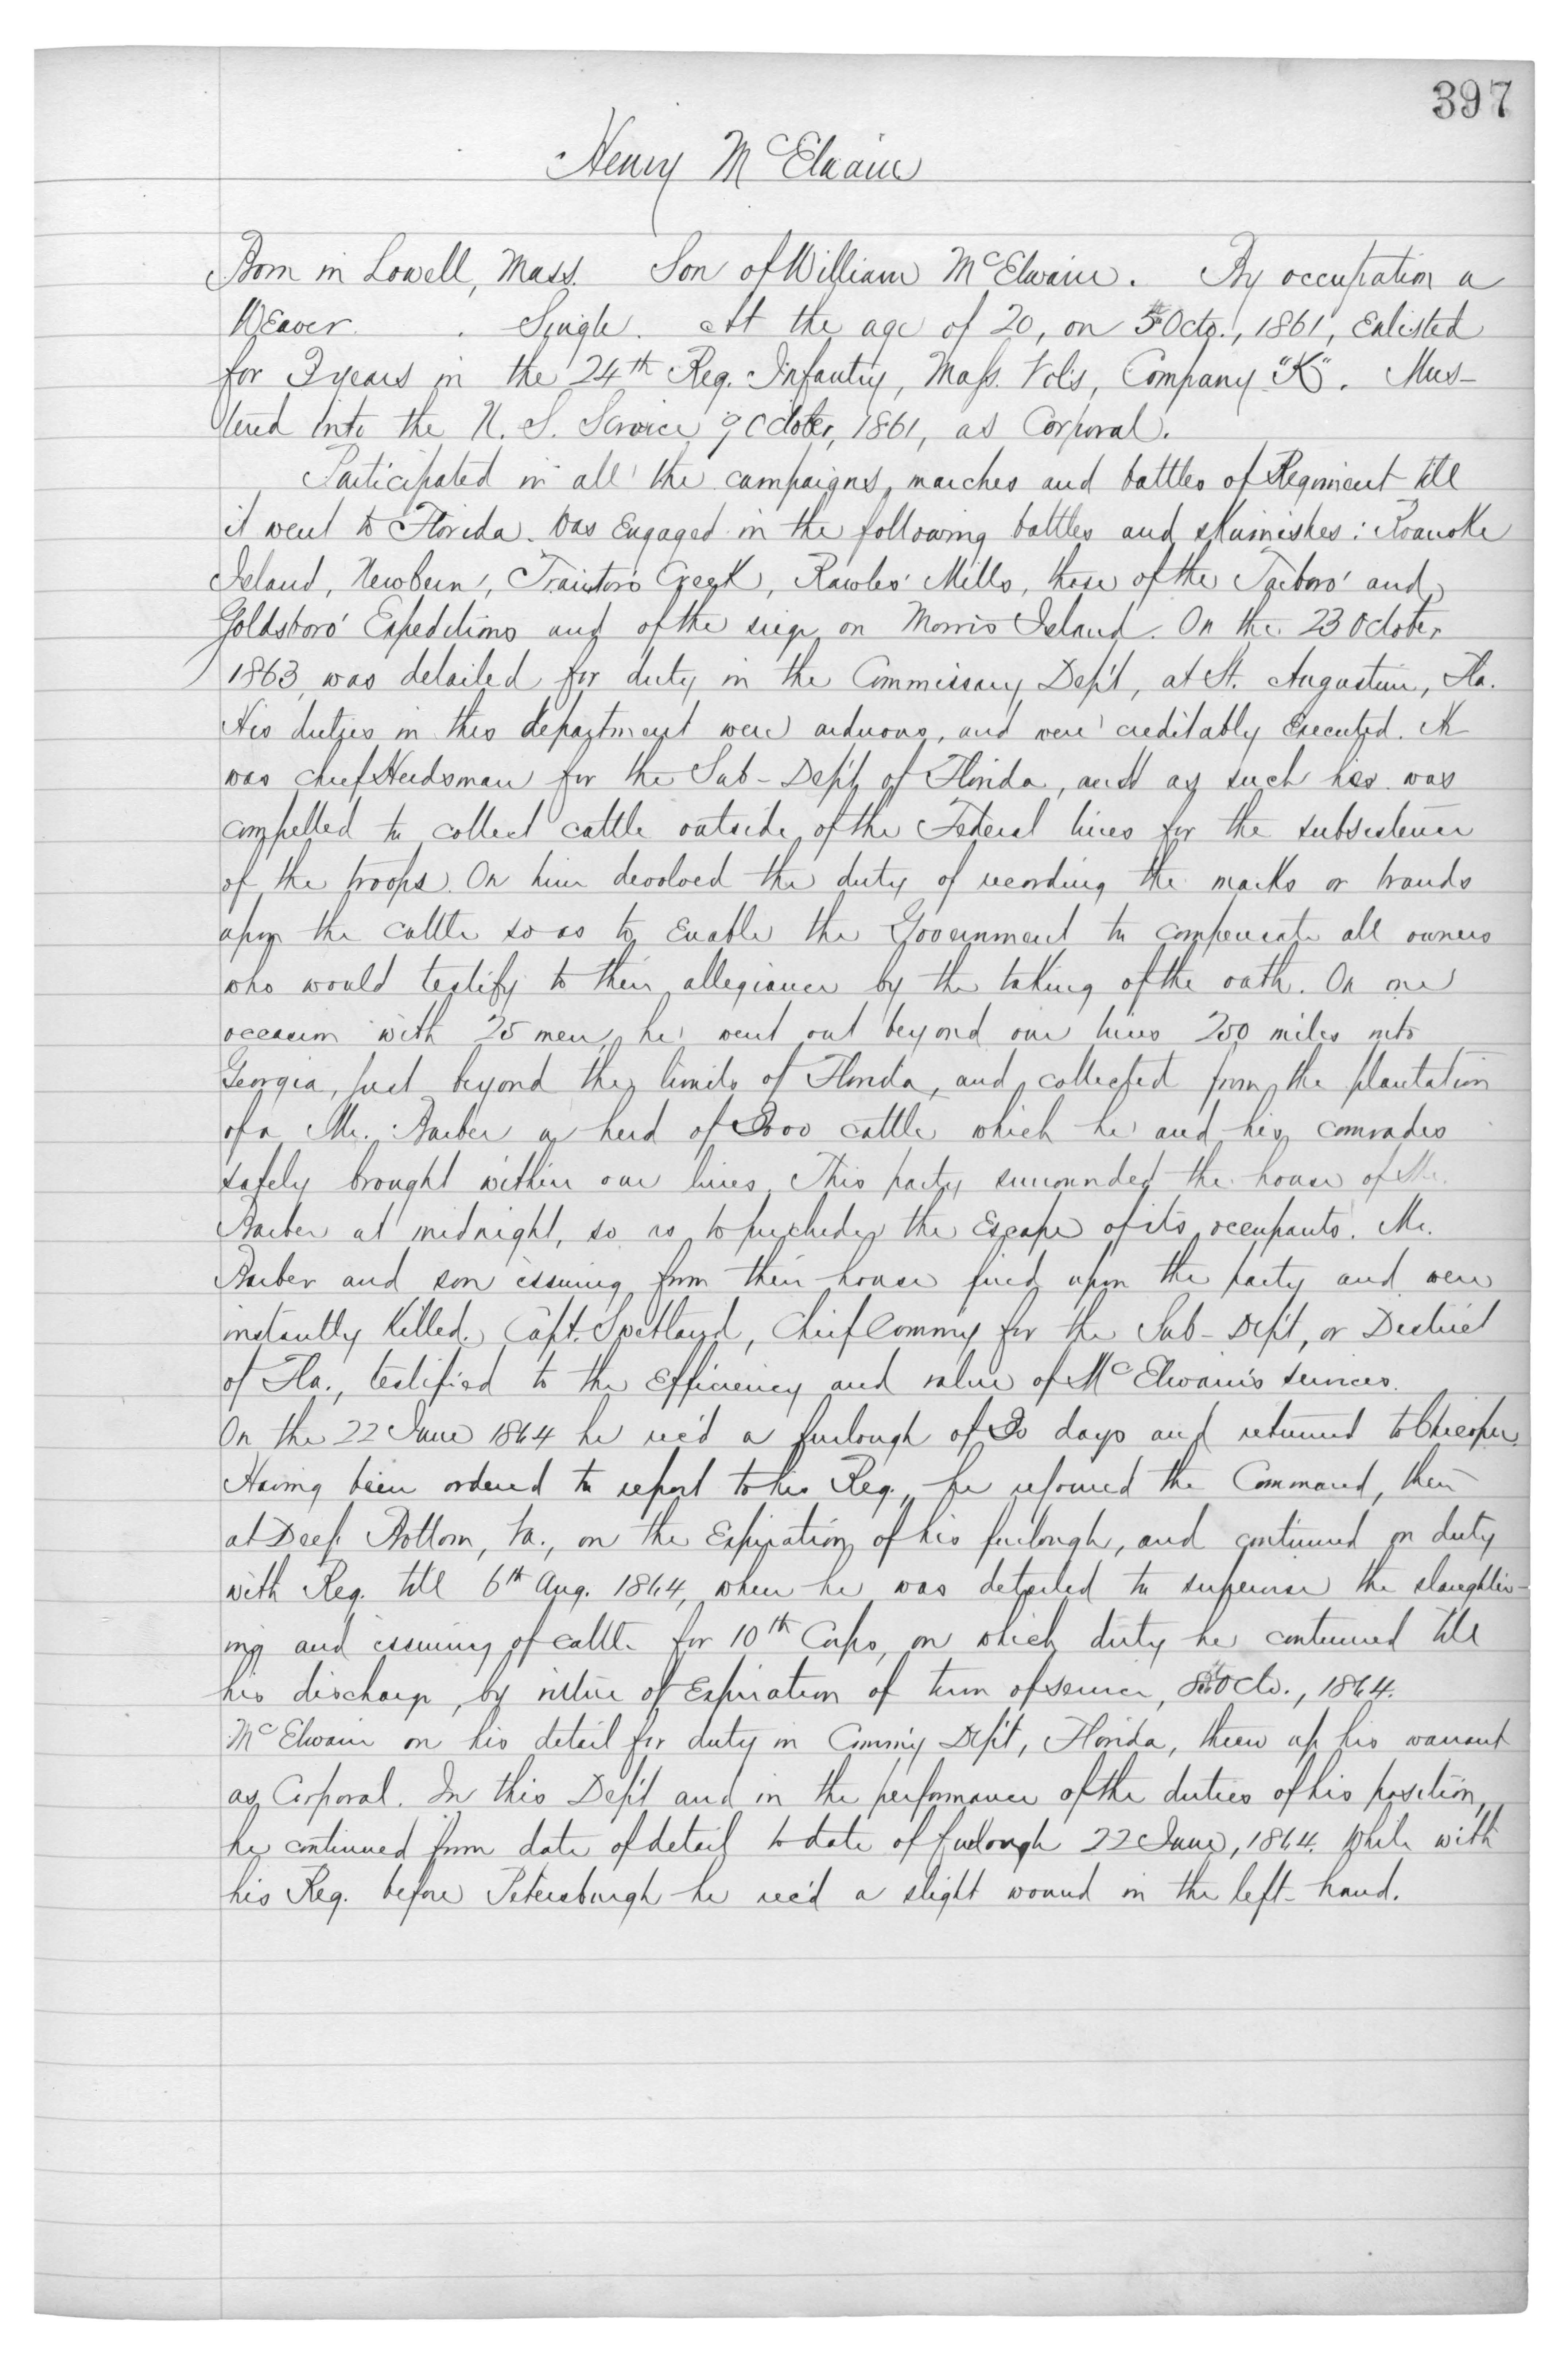 397
Henry McElwain
Born in Lowell, Mass. Son of William McElwain. By occupation a
Weaver. Single. At the age of 20, on 5th Octo., 1861, Enlisted
for 3 years in the 24th Reg. Infantry, Mass. Vols, Company "K". Mus-
tered into the U. S. Service 9 October, 1861, as Corporal.
Participated in all the campaigns, marches and battles of Regiment till
it went to Florida. Was Engaged in the following battles and skirmishes: Roanoke
Island, Newbern, Traintor's Creek, Rawles' Mills, those of the Tarboro' and
Goldsboro' Expeditions and of the siege on Morris Island. On the 23 October
1863, was detailed for duty in the Commissary Dep't, at St. Augustine, Fla.
His duties in this department were arduous, and were creditably Executed. He
was chief Herdsman for the Sub-Dep't of Florida, and as such he was
compelled to collect cattle outside of the Federal lines for the subsistence
of the troops. On him devolved the duty of recording the marks or brands
upon the cattle so as to Enable the Government to compensate all owners
who would testify to their allegiance by the taking of the oath. On one
occasion with 25 men, he went out beyond our lines 200 miles into
Georgia, just beyond the limits of Florida, and collected from the plantation
of a Mr. Barber a herd of 3000 cattle which he and his comrades
safely brought within our lines. This party surrounded the house of Mr.
Barber at midnight, so as to preclude the Escape of its occupants. Mr.
Barber and son issuing from their house fired upon the party and were
instantly killed. Capt. Spotland, Chief Comm'y for the Sub-Dep't, or District
of Fla., testified to the Efficiency and value of McElwain's services.
On the 22 June 1864 he rec'd a furlough of 30 days and returned to Chicopee.
Having been ordered to report to his Reg., he rejoined the Command, then
at Deep Bottom, Va., on the Expiration of his furlough, and continued on duty
with Reg. till 6th Aug. 1864, when he was detailed to supervise the slaughter-
ing and issuing of cattle for 10th Corps, on which duty he continued till
his discharge, by virtue of Expiration of term of service, Octo., 1864.
McElwain on his detail for duty in Comm'y Dep't, Florida, threw up his warrant
as Corporal. In this Dep't and in the performance of the duties of his position,
he continued from date of detail to date of furlough 22 June, 1864. While with
his Reg. before Petersburgh he rec'd a slight wound in the left-hand.